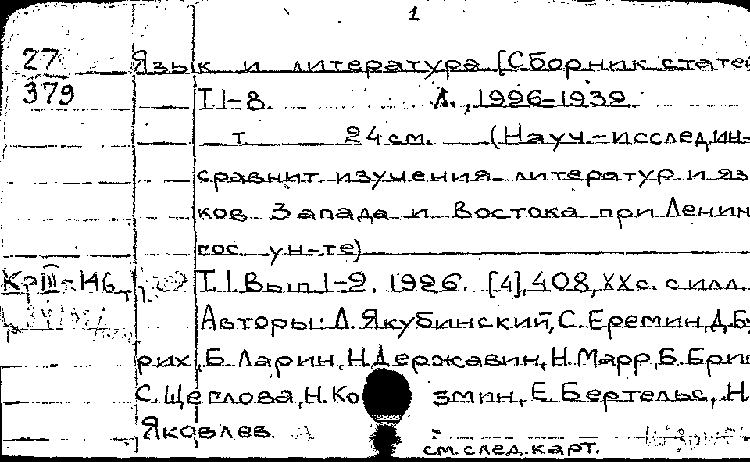 1
27 Язык и литература [Сборник статей
379 Т.1-8. Л., 1926-1932
т. 24 см. (Науч.-исслед. ин-
сравнит. изучения литератур и яз
ков Запада и Востока при Ленин
гос. ун-те)
Кр III-146 Т.I Вып 1-2. 1926. [4], 408, XX с. с илл.
Авторы: Л. Якубинский, С. Еремин, Д. Бу
рих, Б. Ларин, Н. Державин, Н. Марр, Б. Бри
С. Щеглова, Н. Ко змин, Е. Бертельс, Н.
Яковлев
см. след. карт.